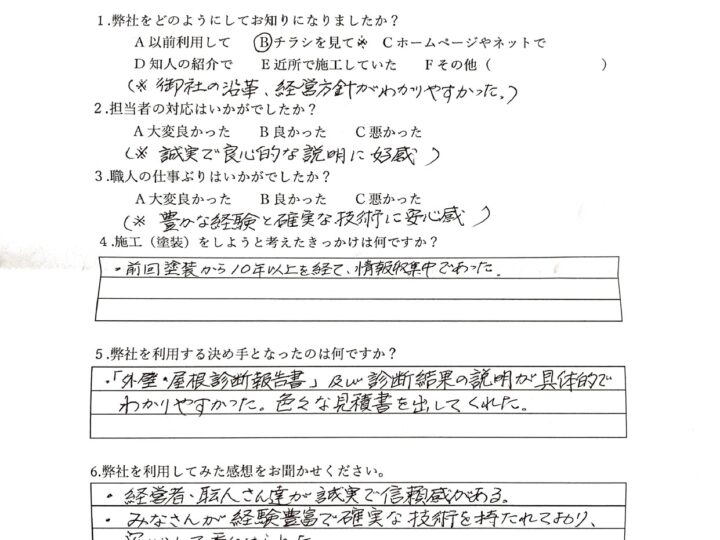 1.弊社をどのようにしてお知りになりましたか？
A 以前利用して　Ⓑチラシを見て※　C ホームページやネットで
D 知人の紹介で　E 近所で施工していた　F その他（　　　　　　）
(※ 御社の沿革、経営方針がわかりやすかった。)
2.担当者の対応はいかがでしたか？
A 大変良かった　B 良かった　C 悪かった
(※ 誠実で良心的な説明に好感 )
3.職人の仕事ぶりはいかがでしたか？
A 大変良かった　B 良かった　C 悪かった
(※ 豊かな経験と確実な技術に安心感 )
4.施工（塗装）をしようと考えたきっかけは何ですか？
・前回塗装から10年以上を経て、情報収集中であった。
5.弊社を利用する決め手となったのは何ですか？
・「外壁・屋根診断報告書」及び診断結果の説明が具体的で
わかりやすかった。色々な見積書を出してくれた。
6.弊社を利用してみた感想をお聞かせください。
・経営者・職人さん達が誠実で信頼感がある。
・みなさんが経験豊富で確実な技術を持たれており、